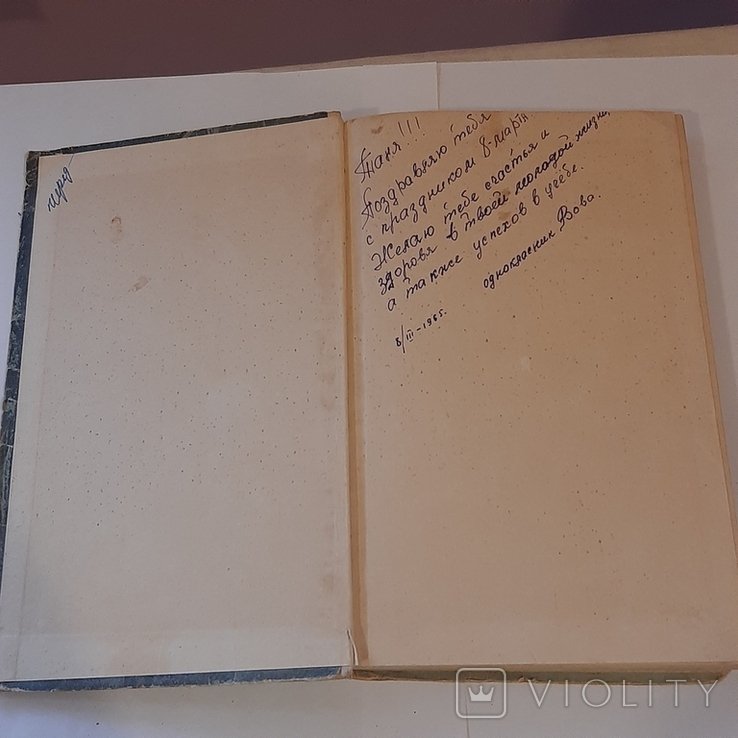 Таня!!!
Поздравляю тебя
с праздником 8-марта
Желаю тебе счастья и
здоровя в твоей молодой жизни,
а также успехов в учёбе.
однокласник Вова.
8/III-1965.
VIOLITY